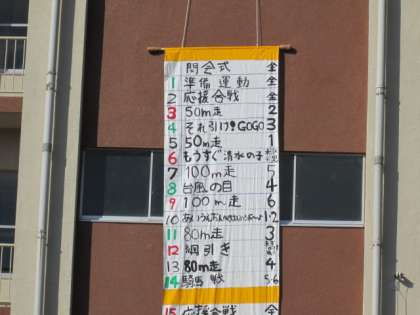 開会式 全
1 準備運動 全
2 応援合戦 全
3 50m走 2
4 それ引け!GOGO 3
5 50m走 1
6 もうすぐ清水の子
7 100m走 5
8 台風の目 4
9 100m走 6
10 1・2
11 80m走 3
12 綱引き
13 80m走 4
14 騎馬戦 5・6
15 応援合戦 全